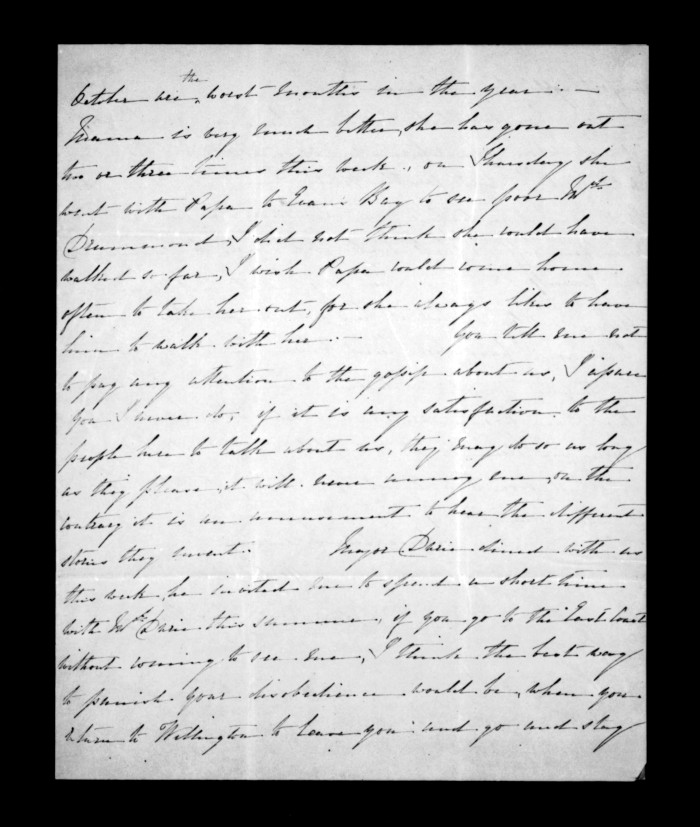 October are the worst months in the year. —
Mama is very much better, she has gone out
two or three times this week, on Thursday she
went with Papa to Evans Bay to see poor Mrs
Drummond, I did not think she could have
walked so far, I wish Papa would come home
often to take her out, for she always likes to have
him to walk with her. — You tell me not
to pay any attention to the gossip about us, I assure
you I never do, if it is any satisfaction to the
people here to talk about us, they may do so as long
as they please it will never annoy me, on the
contrary it is an amusement to hear the different
stories they invent. Major Durie dined with us
this week, he invited me to spend a short time
with Mrs Durie this summer, if you go to the East Coast
without coming to see me, I think the best way
to punish your disobedience would be, when you
return to Wellington to leave you and go and stay